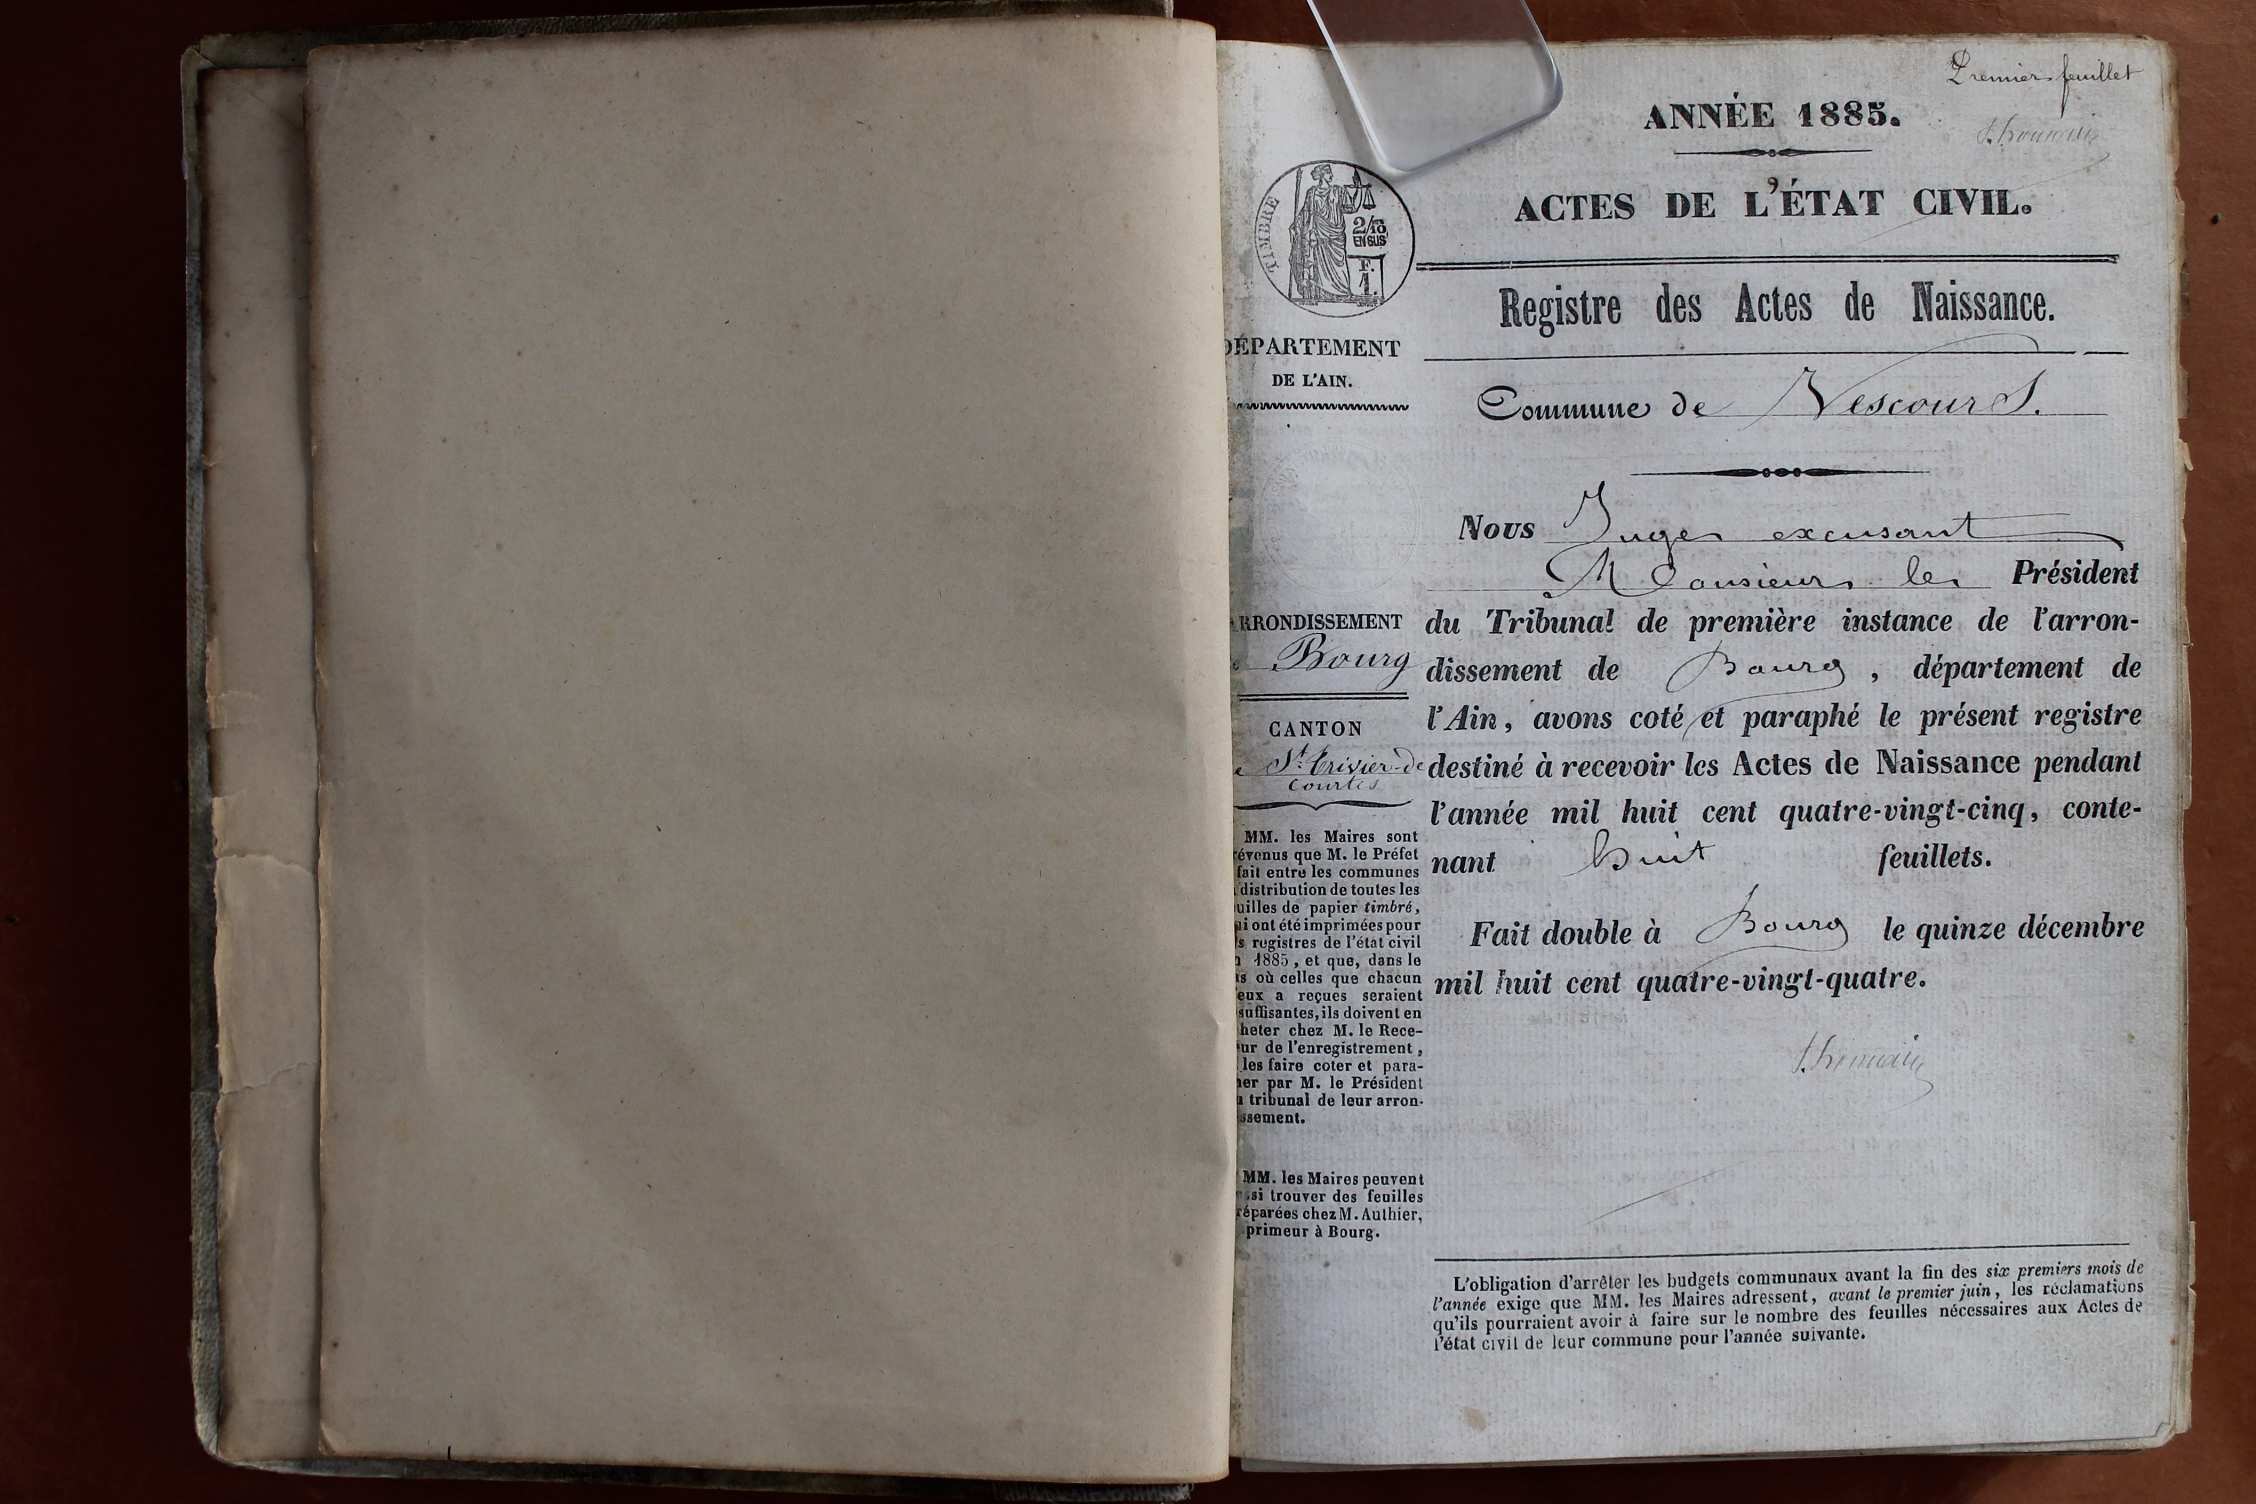 Premier feuillet
ANNÉE 1885.
ACTES DE L'ÉTAT CIVIL.
TIMBRE
2/10
EN SUS
F.
1.
Registre des Actes de Naissance.
DÉPARTEMENT
DE L'AIN.
Commune de Vescours.
Nous Juge excusant
Monsieur le Président
du Tribunal de première instance de l'arron-
dissement de Bourg, département de
l'Ain, avons coté et paraphé le présent registre
destiné à recevoir les Actes de Naissance pendant
l'année mil huit cent quatre-vingt-cinq, conte-
nant huit feuillets.
Fait double à Bourg le quinze décembre
mil huit cent quatre-vingt-quatre.
ARRONDISSEMENT
Bourg
CANTON
St. Trivier-de
Courtes
MM. les Maires sont
révenus que M. le Préfet
fait entre les communes
distribution de toutes les
uilles de papier timbré,
ui ont été imprimées pour
s registres de l'état civil
1885, et que, dans le
s où celles que chacun
eux a reçues seraient
suffisantes, ils doivent en
heter chez M. le Rece-
ur de l'enregistrement,
les faire coter et para-
er par M. le Président
tribunal de leur arron-
ssement.
MM. les Maires peuvent
si trouver des feuilles
réparées chez M. Authier,
primeur à Bourg.
L'obligation d'arrêter les budgets communaux avant la fin des six premiers mois de
l'année exige que MM. les Maires adressent, avant le premier juin, les réclamations
qu'ils pourraient avoir à faire sur le nombre des feuilles nécessaires aux Actes de
l'état civil de leur commune pour l'année suivante.